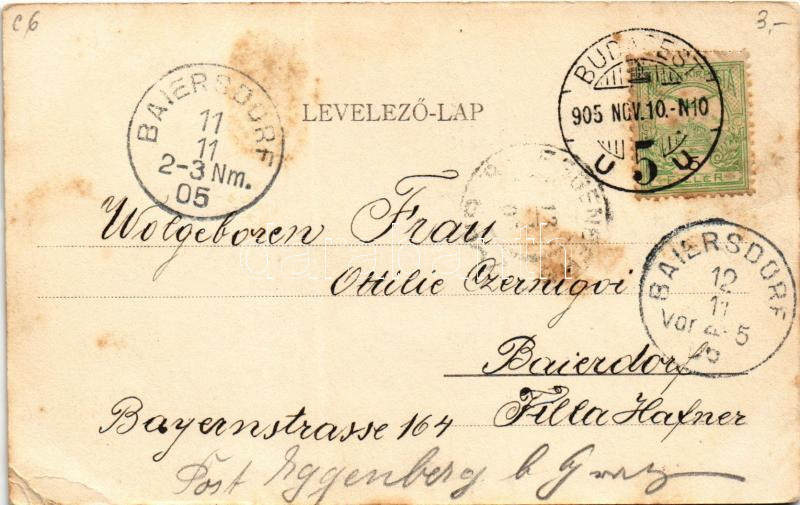 c6
3,-
BAIERSDORF
11
11
2-3 Nm.
05
LEVELEZŐ-LAP
BUDAPEST
905 NOV.10.-N10
5
Wolgeboren Frau
Ottilie Czernigoi
Baierdorf
Bayernstrasse 164 Filla Hafner
Post Eggenberg b Graz
BAIERSDORF
12
11
Vor 4-5
05
darabanth